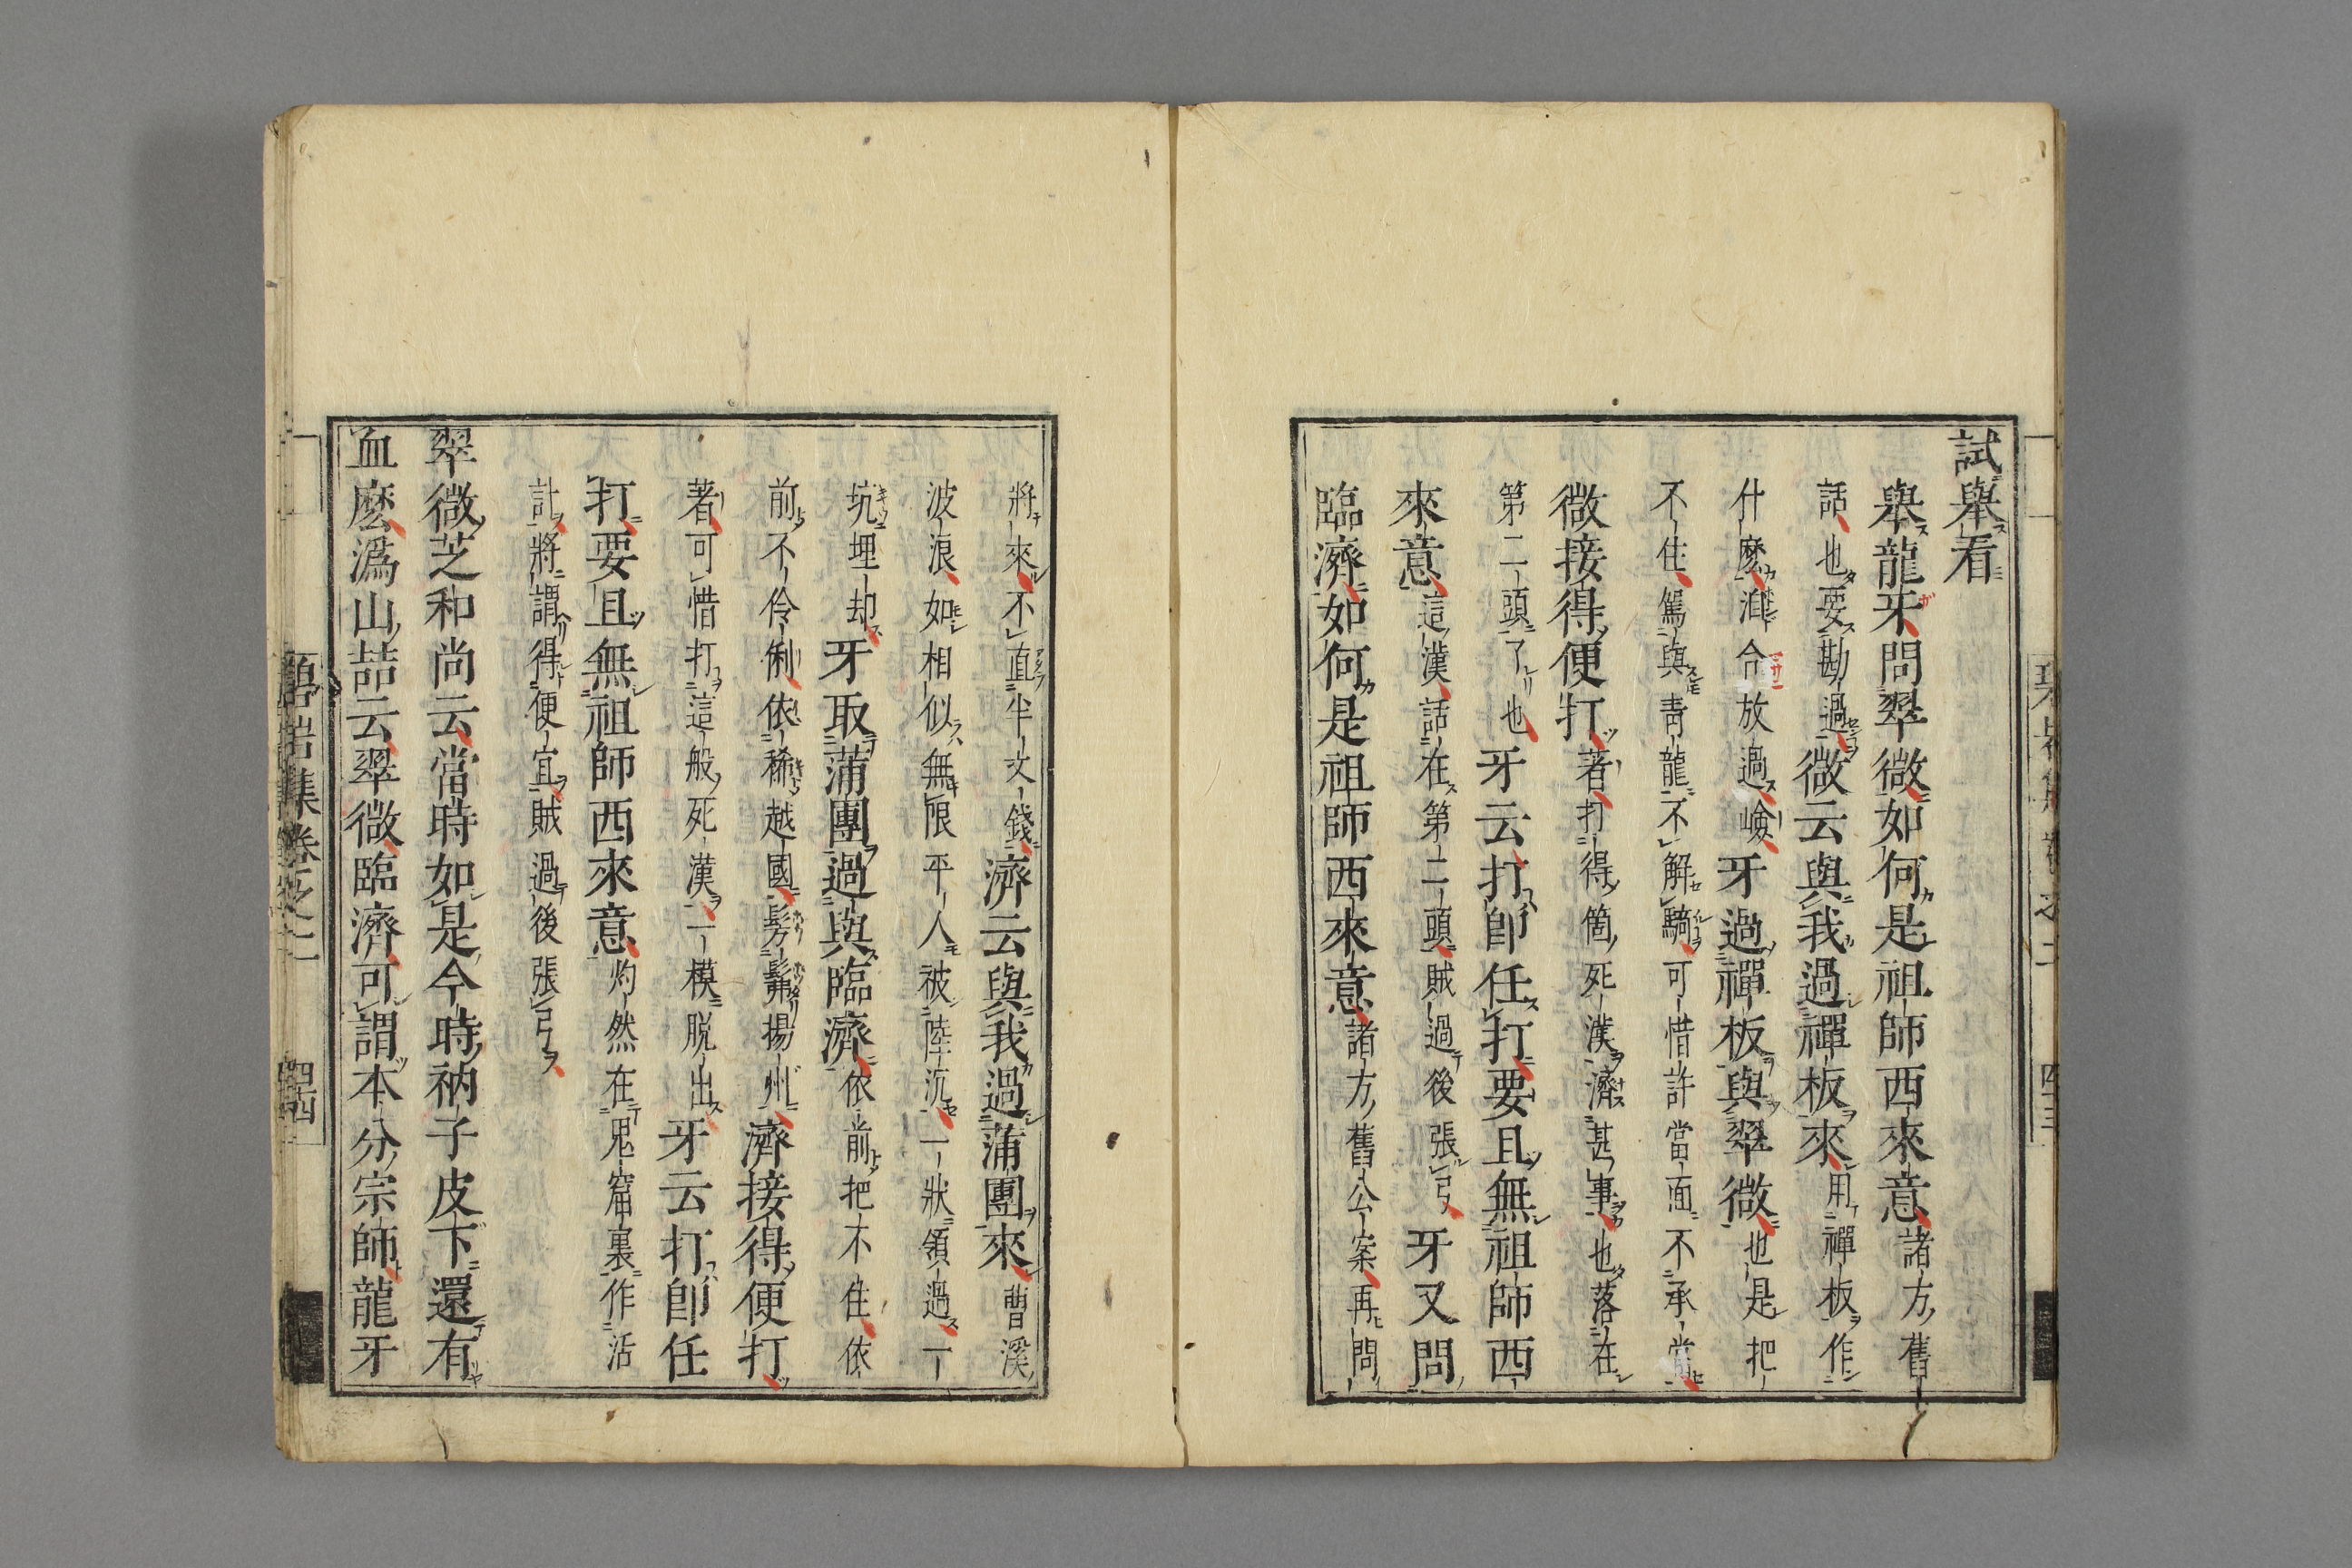 試舉看
舉龍牙問翠微如何是祖師西來意諸方舊
話也要勘過微云與我過禪板來用禪板作
什麼洎合放過嶮牙過禪板與翠微也是把
不住駕與青龍不解騎可惜許當面不承當
微接得便打著打得箇死漢濟甚事也落在
第二頭了也牙云打即任打要且無祖師西
來意這漢話在第二頭賊過後張弓牙又問
臨濟如何是祖師西來意諸方舊公案再問
將來不直半文錢濟云與我過蒲團來曹溪
波浪如相似無限平人被陸沉一狀領過一
坑埋却牙取蒲團過與臨濟依前把不住依
前不伶俐依稀越國髣髴揚州濟接得便打
著可惜打這般死漢一模脱出牙云打即任
打要且無祖師西來意灼然在鬼窟裏作活
計將謂得便宜賊過後張弓
翠微芝和尚云當時如是今時衲子皮下還有
血麼潙山喆云翠微臨濟可謂本分宗師龍牙
碧岩集卷之二 四四